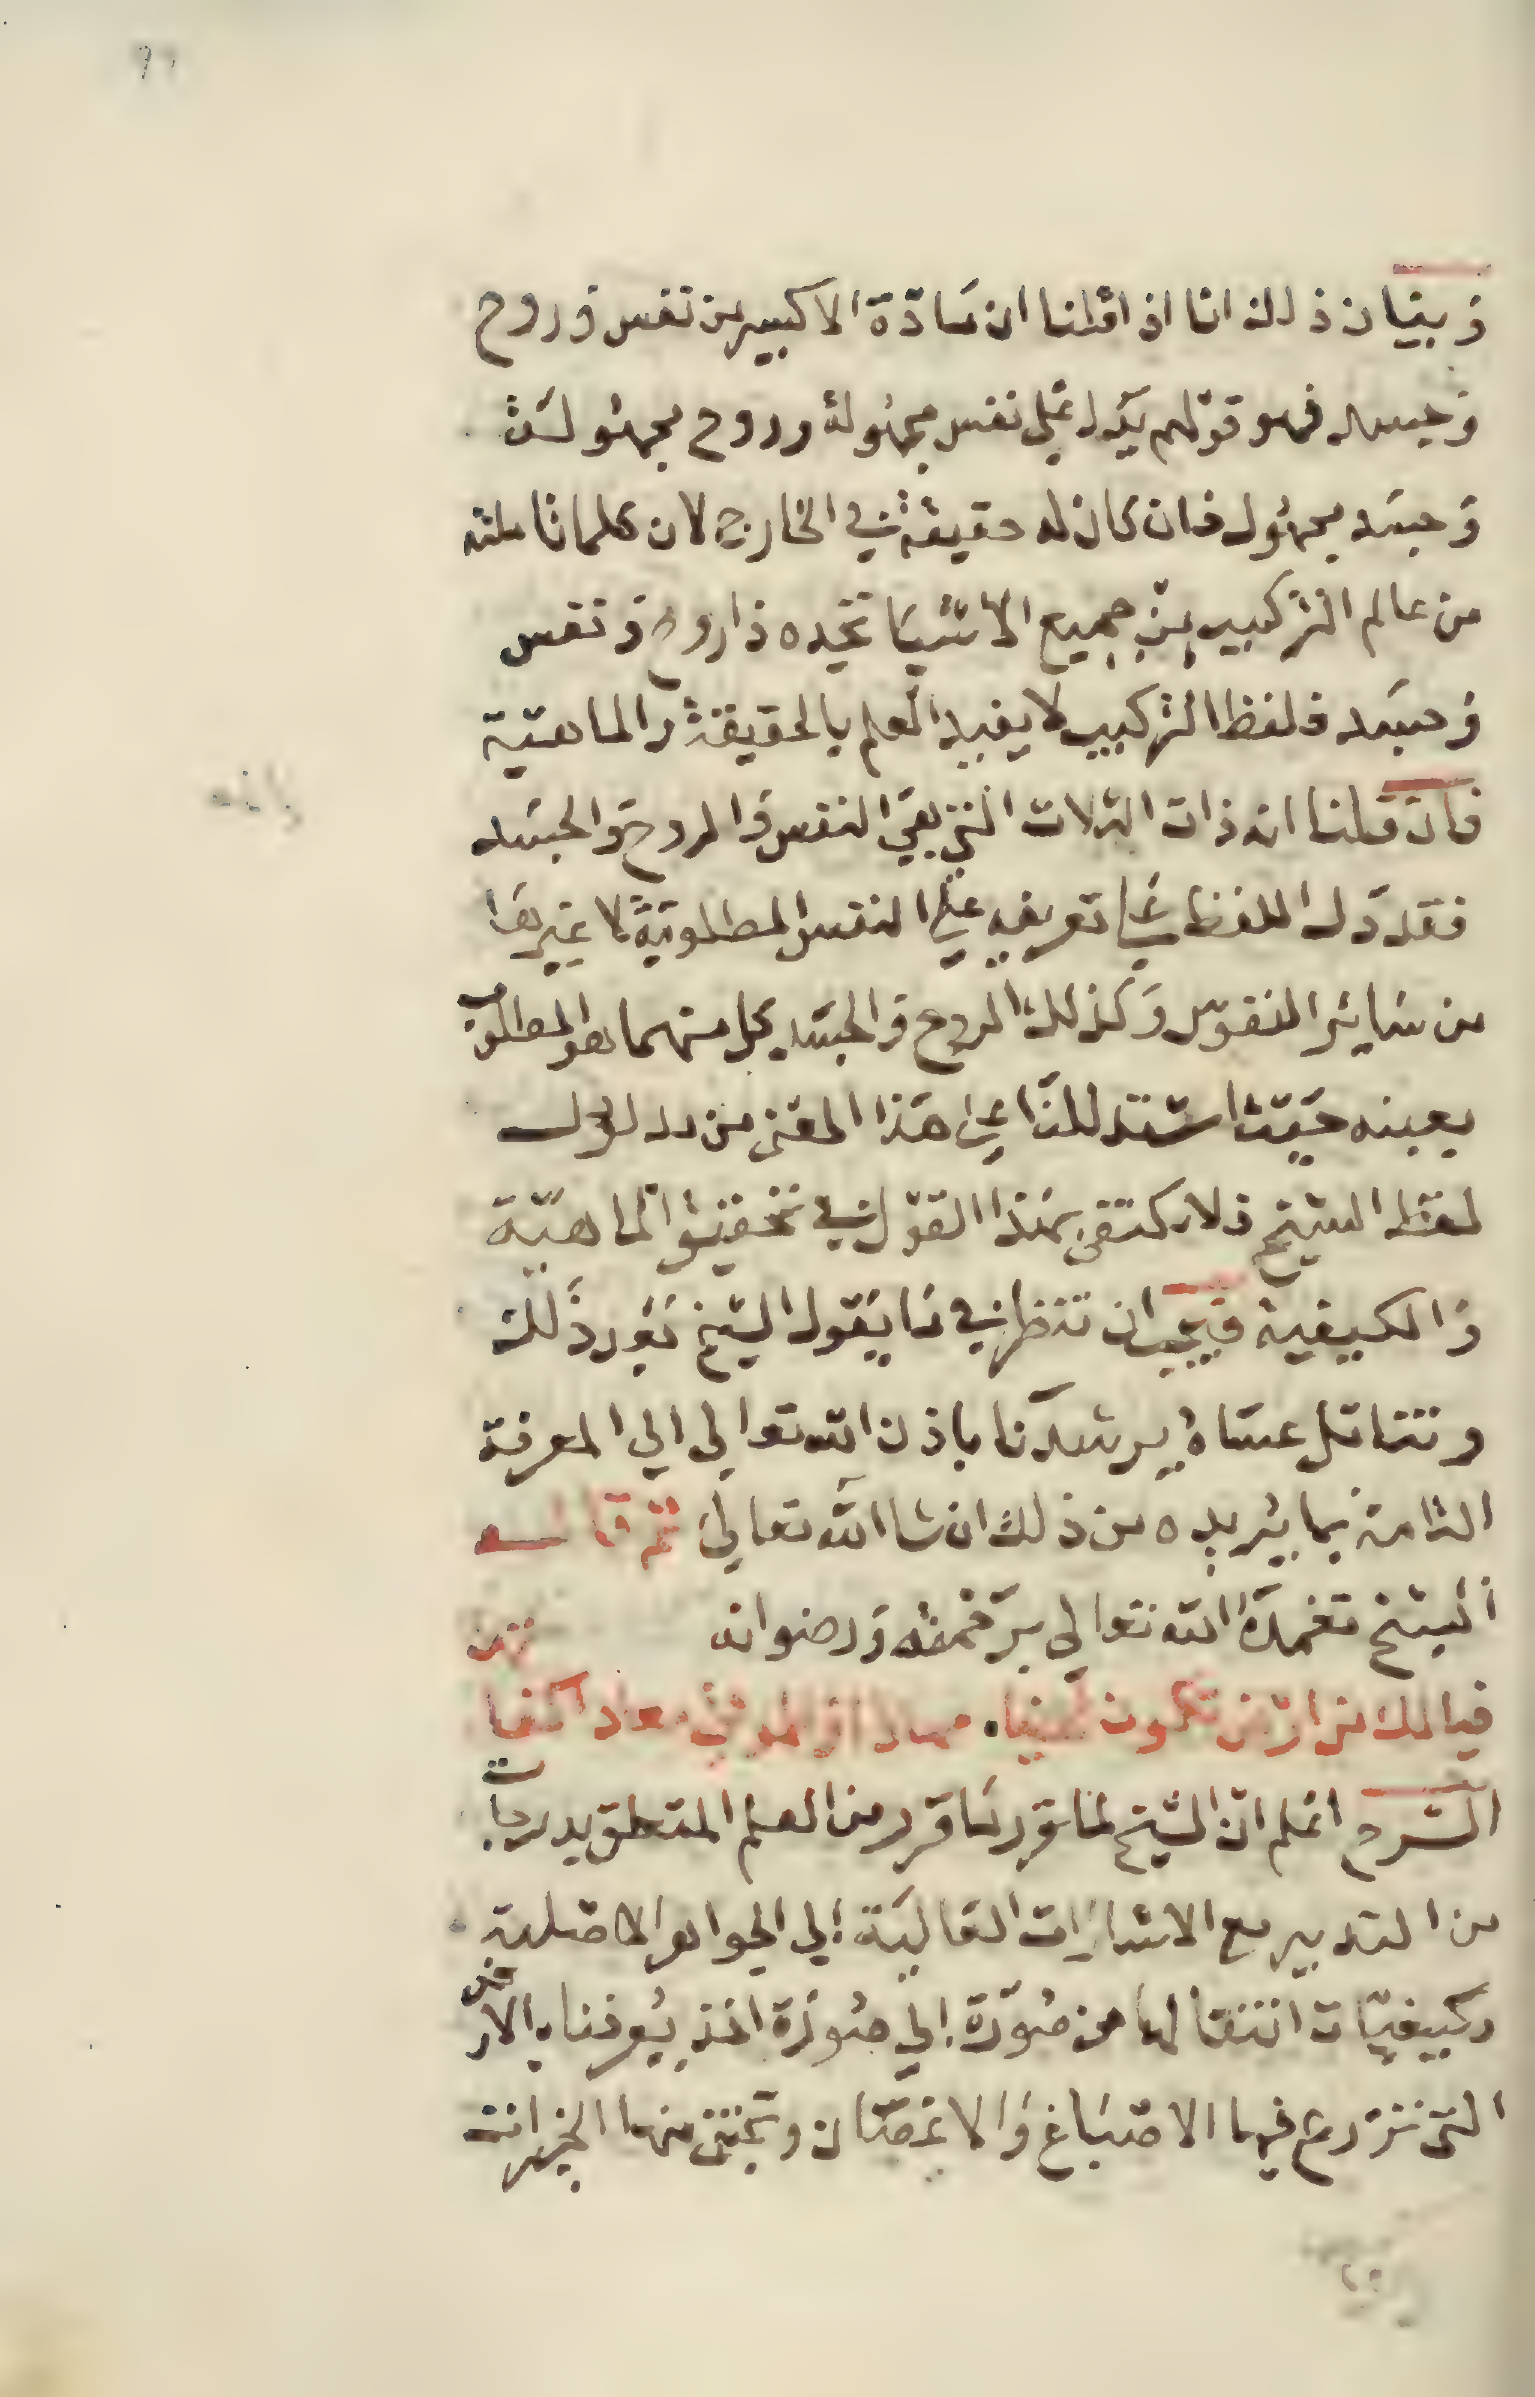 وبيان ذلك انا اذا قلنا ان مادة الاكسير من نفس وروح
وجسد فهو قولهم يدل علي نفس مجهولة وروح مجهولة
وجسد مجهول فان كان له حقيقة في الخارج لان كلما تاملته
من عالم التركيب من جميع الاشيا تجده ذا روح ونفس
وجسد فلفظ التركيب لا يفيد العلم بالحقيقة والماهية
فان قلنا انه ذات الثلاث التي هي النفس والروح والجسد
فقد دل اللفظ علي تعريفه علي النفس المطلوبة لا غيرها
من سائر النفوس وكذلك الروح والجسد كل منهما هو المطلوب
بعينه حيث استدللنا علي هذا المعني من مدلول
لفظ الشيخ ولا نكتفي بهذا القول في تحقيق الماهية
والكيفية فيجب ان ننظر في ما يقول الشيخ بعد ذلك
ونتامل عساه يرشدنا باذن الله تعالي الي المعرفة
التامة بما يريده من ذلك ان شا الله تعالي ثم قال
الشيخ تغمده الله تعالي برحمته ورضوانه
فيا لك من ارض تكون
الشرح اعلم ان الشيخ لما قرر ما قرر من العلم المتعلق بدرجات
من التدبير مع الاشارات العالية الي الجواهر الاصلية
وكيفيات انتقالها من صورة الي صورة اخذ يعرفنا بالارض
التي تزرع فيها الاصباغ والاغصان وتجتني منها الخيرات